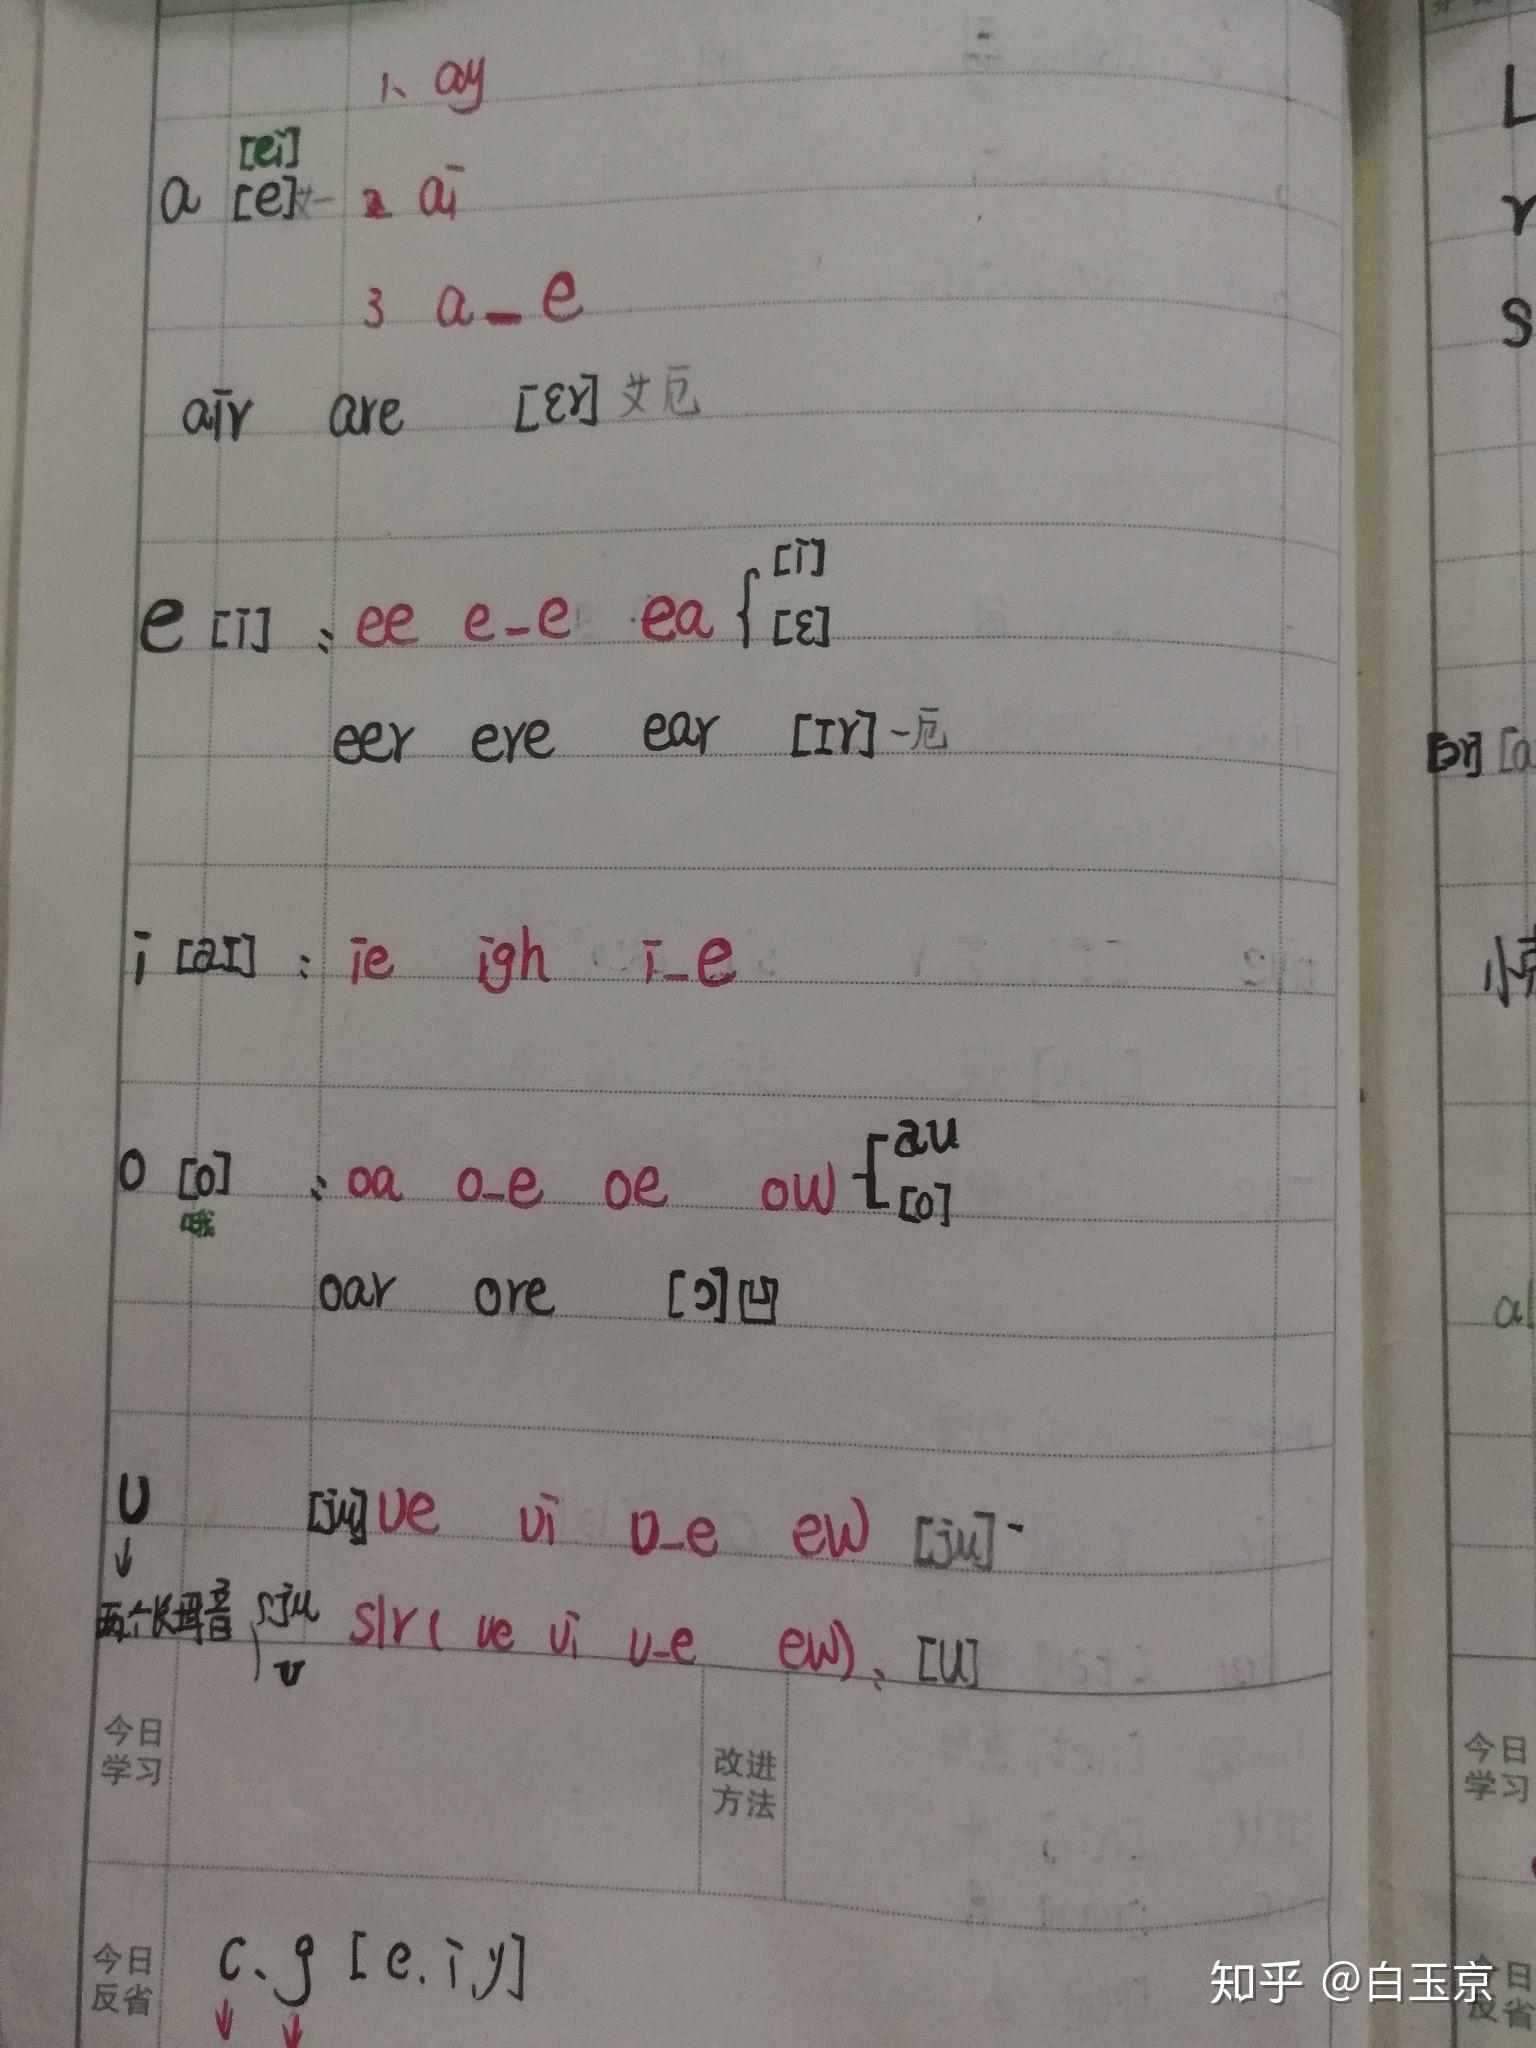 1、ay
[ei]
a [e] 2 ai
3 a_e
air are [ɛr] 艾厄
e [i] : ee e_e ea { [i]
[ɛ]
eer ere ear [Ir] 一厄
i [aI] : ie igh i_e
o [o] : oa o_e oe ow [ au
[o]
哦
oar ore [ɔ] 凹
U [ju] ue ui u_e ew [ju]
↓
两个长母音 { ju
u
slr ( ue ui u_e ew ) : [U]
今日
学习
改进
方法
今日
反省
c、g [e. i y]
↓ ↓
L
r
S
[ɔr] [a
小
al
今日
学习
今日
反省
知乎 @白玉京